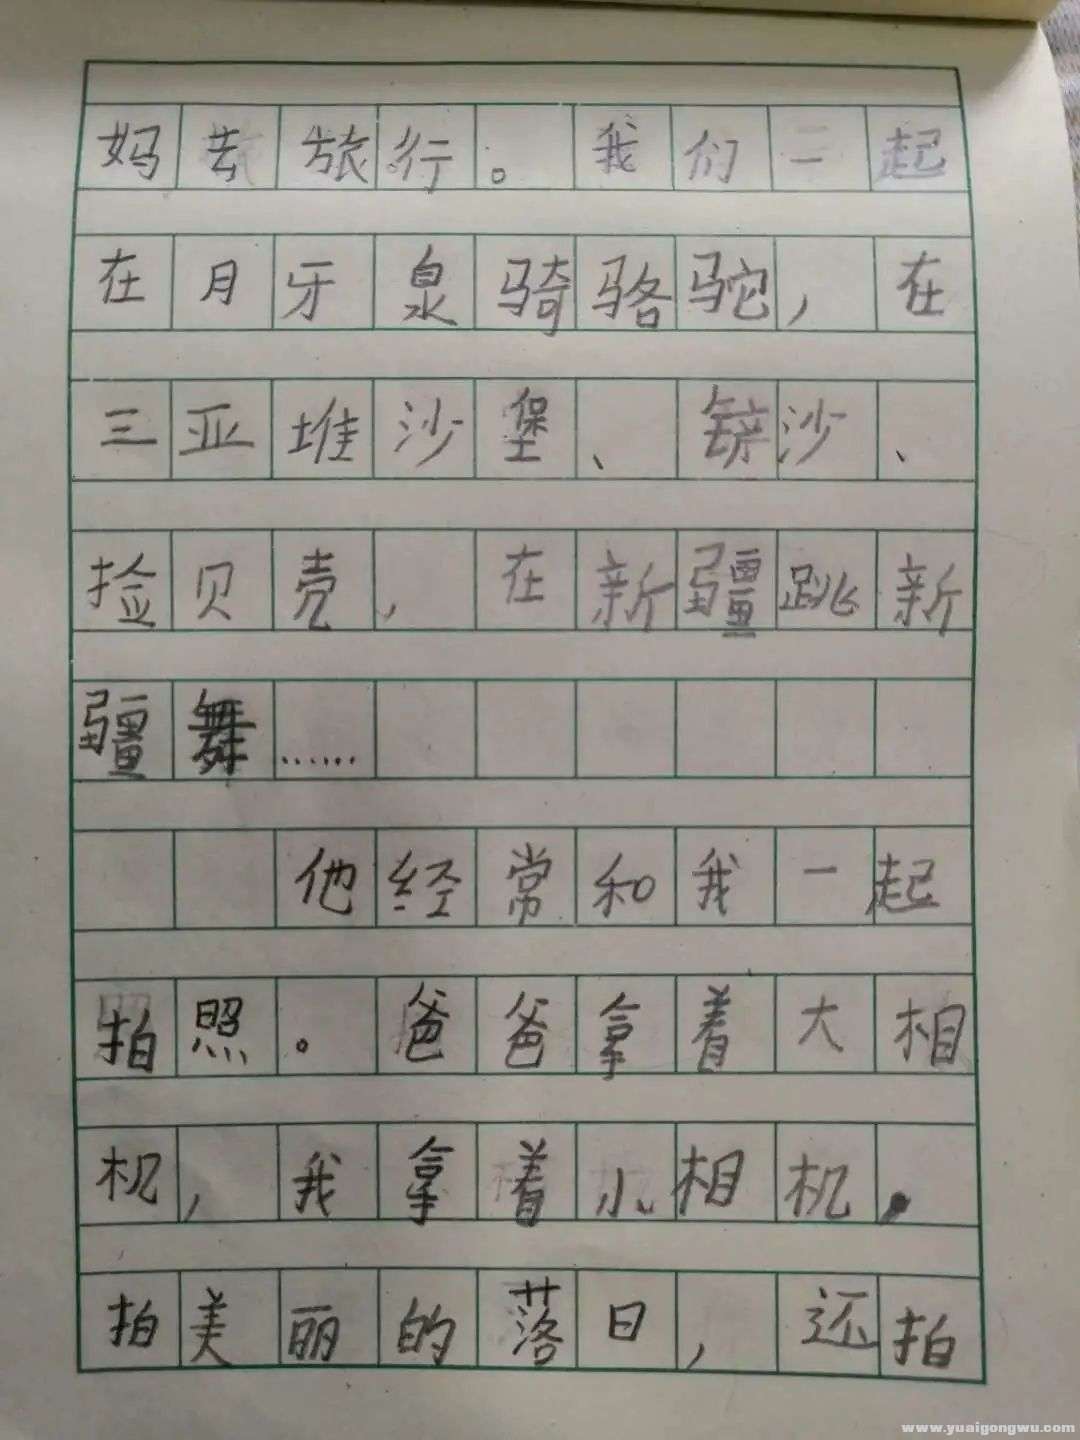 妈去旅行。我们一起
在月牙泉骑骆驼，在
三亚堆沙堡、铲沙、
捡贝壳，在新疆跳新
疆舞……
他经常和我一起
拍照。爸爸拿着大相
机，我拿着小相机，
拍美丽的落日，还拍
www.yuaigongwu.com